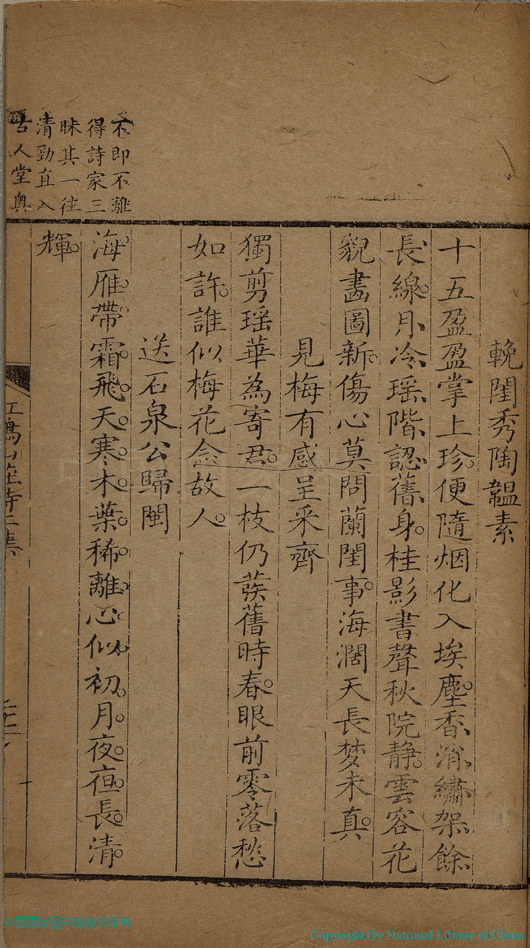 輓閨秀陶韞素
十五盈盈掌上珍便隨烟化入埃塵香消繡架餘
長線月冷瑶階認舊身桂影書聲秋院静雲容花
貌畵圖新傷心莫問蘭閨事海濶天長梦未真
見梅有感呈采齊
獨剪瑶華為寄君一枝仍䕺舊時春眼前零落愁
如許誰似梅花念故人
送石泉公歸閩
海雁帶霜飛天寒木葉稀離心似初月夜夜長清
輝
不即不離
得詩家三
昧其一徃
清勁直入
古人堂奥
Copyright By National Library of China